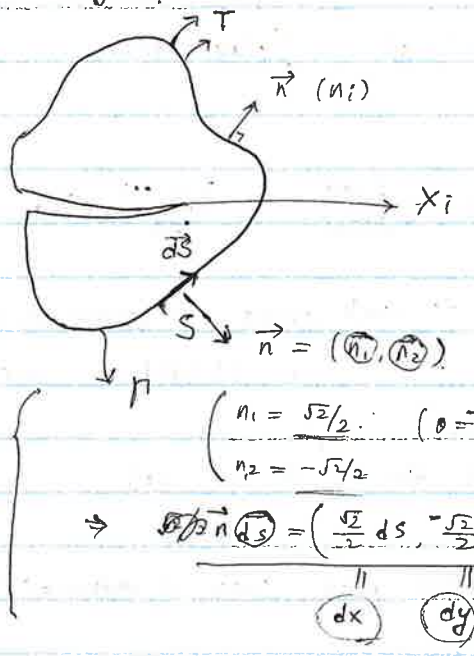 T
n⃗ (nᵢ)
Xᵢ
d⃗S
S
n⃗ = (n₁, n₂)
Γ
n₁ = √2/2 . (θ =
n₂ = -√2/2
⇒ n⃗ ds = ( √2/2 dS, -√2/2
|| ||
dx dy